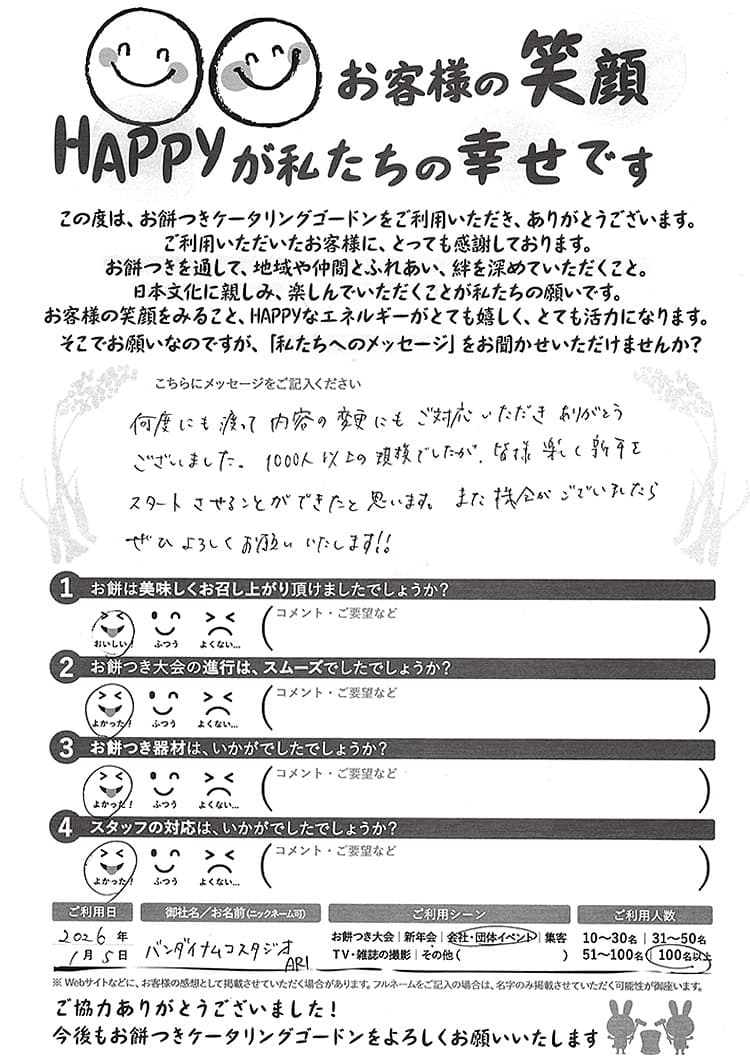 お客様の笑顔
HAPPYが私たちの幸せです
この度は、お餅つきケータリングゴードンをご利用いただき、ありがとうございます。
ご利用いただいたお客様に、とっても感謝しております。
お餅つきを通して、地域や仲間とふれあい、絆を深めていただくこと。
日本文化に親しみ、楽しんでいただくことが私たちの願いです。
お客様の笑顔をみること、HAPPYなエネルギーがとても嬉しく、とても活力になります。
そこでお願いなのですが、「私たちへのメッセージ」をお聞かせいただけませんか？
こちらにメッセージをご記入ください
何度にも渡って内容の変更にもご対応いただきありがとう
ございました。1000人以上の規模でしたが、皆様楽しく新年を
スタートさせることができたと思います。また機会がございましたら
ぜひよろしくお願いいたします!!
1 お餅は美味しくお召し上がり頂けましたでしょうか？
おいしい! ふつう よくない… コメント・ご要望など
2 お餅つき大会の進行は、スムーズでしたでしょうか？
よかった! ふつう よくない… コメント・ご要望など
3 お餅つき器材は、いかがでしたでしょうか？
よかった! ふつう よくない… コメント・ご要望など
4 スタッフの対応は、いかがでしたでしょうか？
よかった! ふつう よくない… コメント・ご要望など
ご利用日 御社名／お名前(ニックネーム可) ご利用シーン ご利用人数
2026年 バンダイナムコスタジオ お餅つき大会｜新年会｜会社・団体イベント｜集客 10〜30名｜31〜50名
1月5日 ARI TV・雑誌の撮影｜その他( ) 51〜100名｜100名以上
※Webサイトなどに、お客様の感想として掲載させていただく場合があります。フルネームをご記入の場合は、名字のみ掲載させていただく可能性が御座います。
ご協力ありがとうございました！
今後もお餅つきケータリングゴードンをよろしくお願いいたします